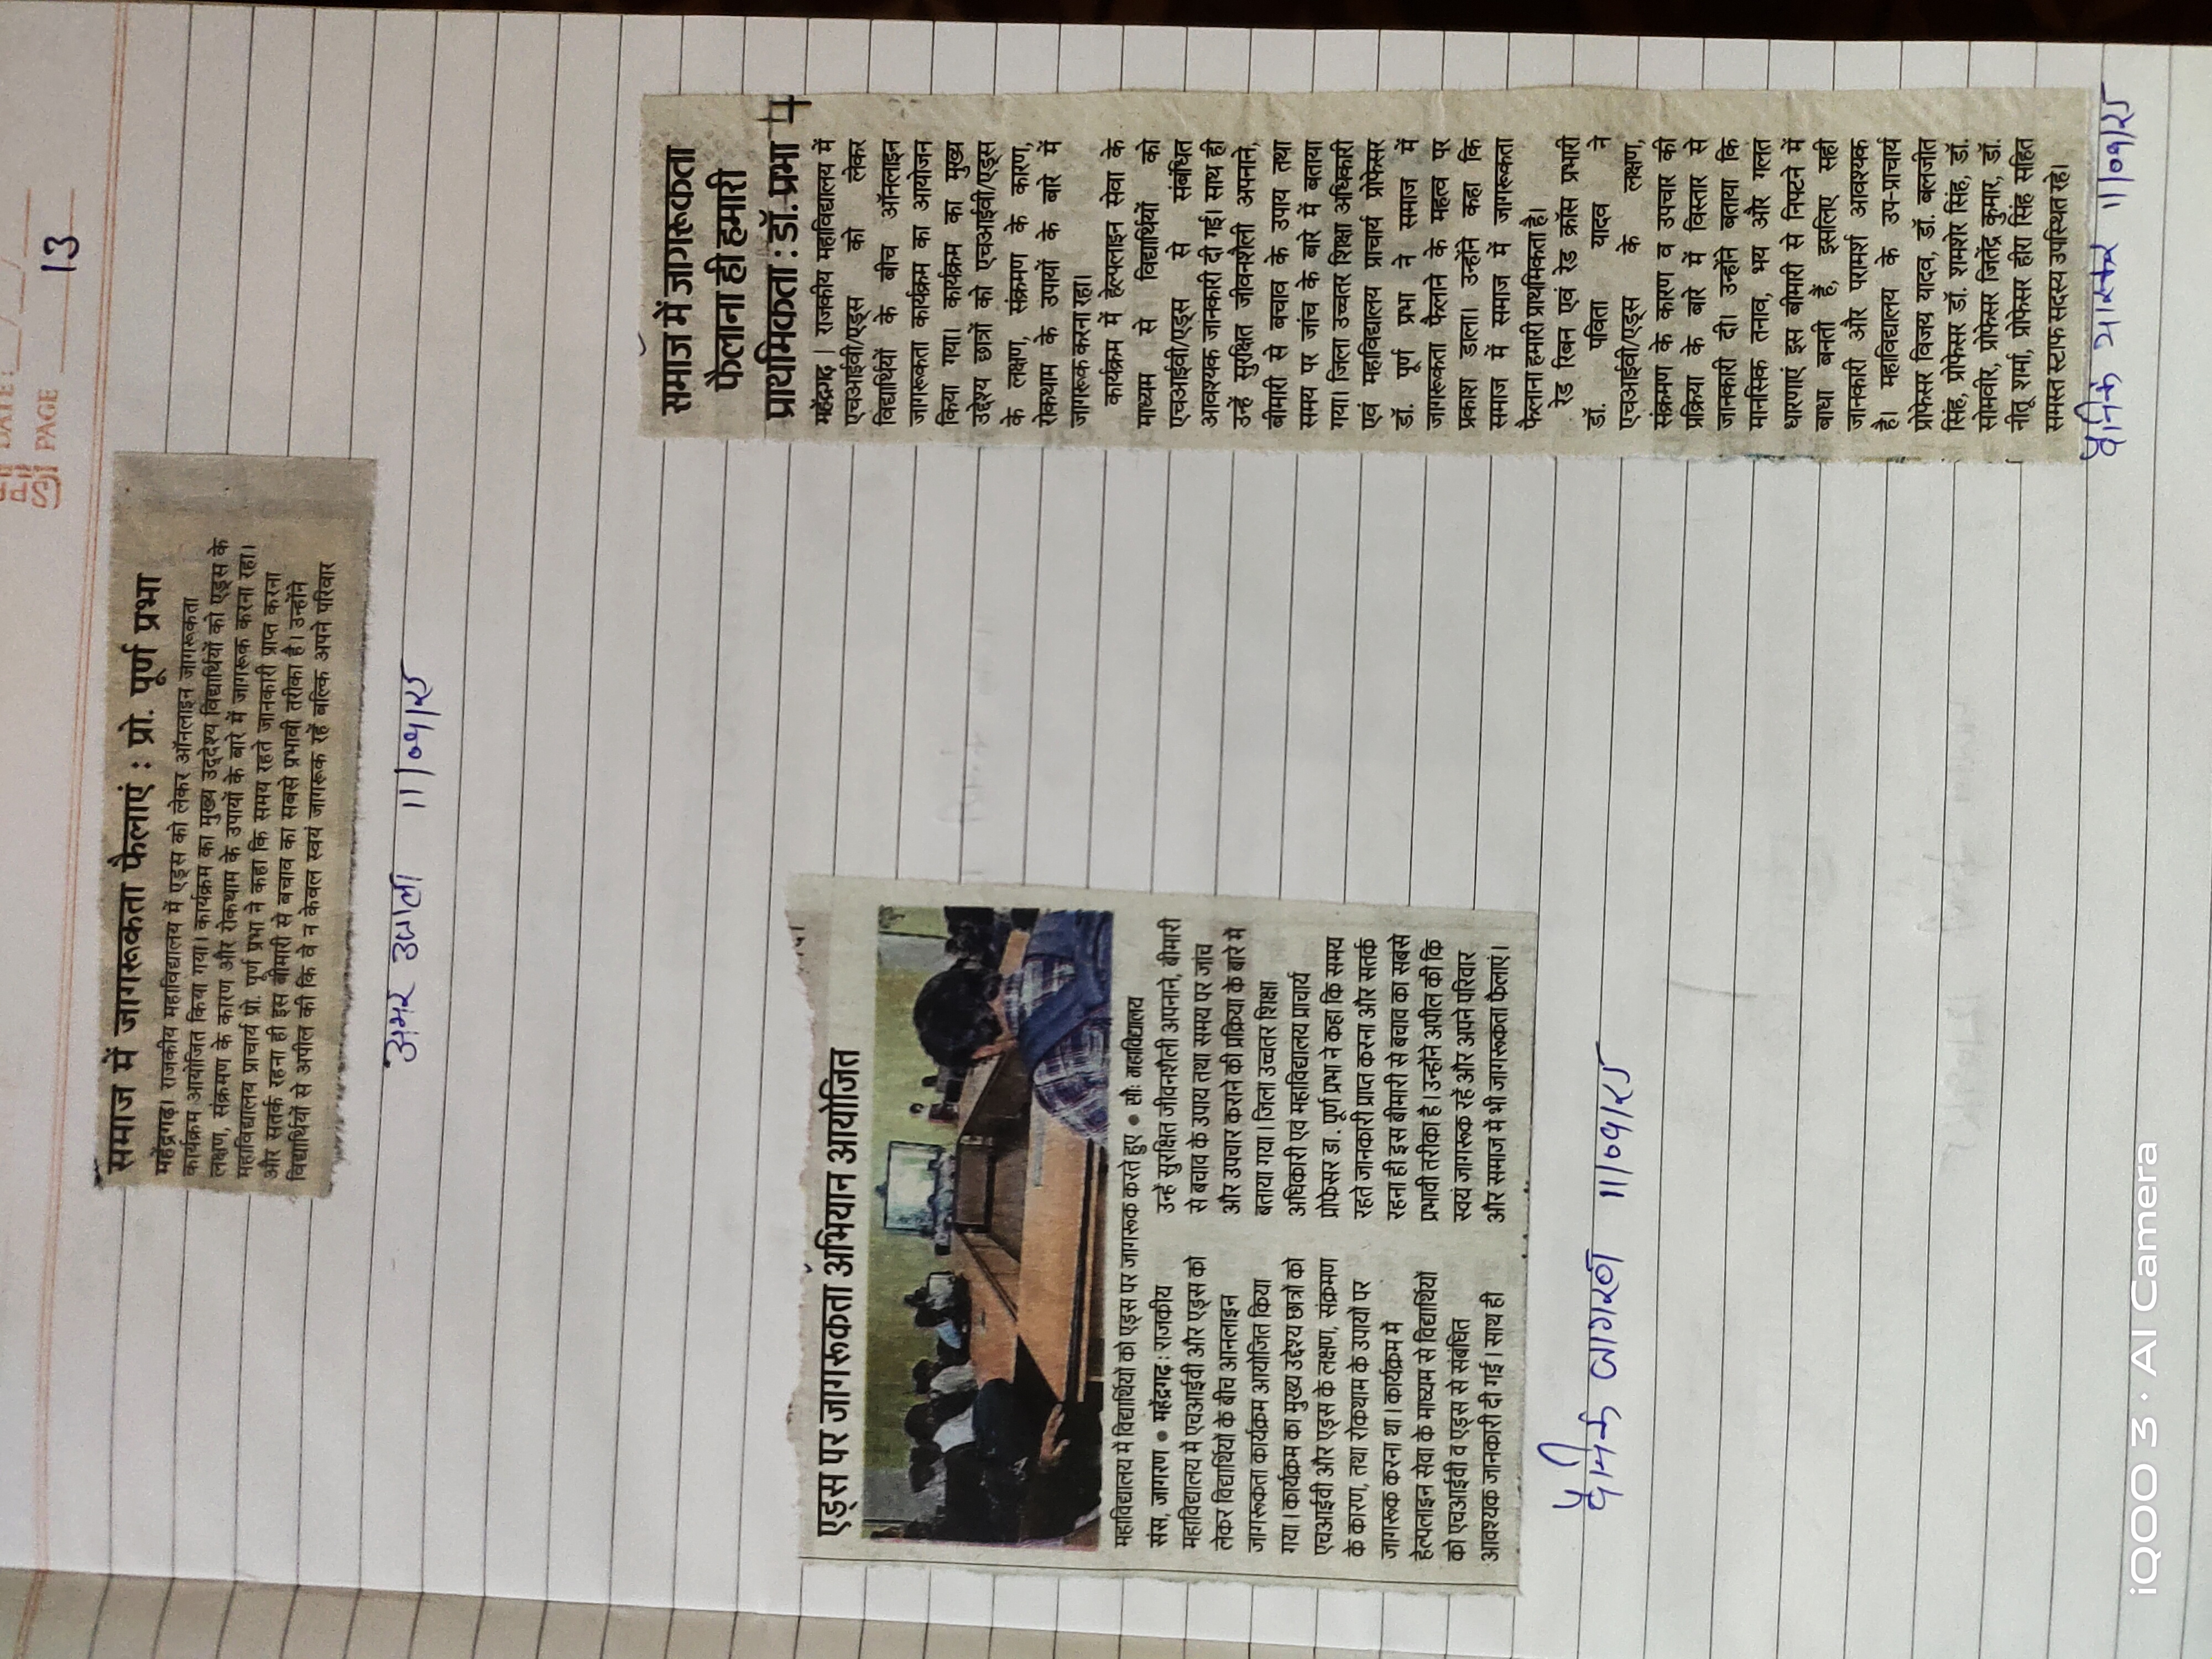 DATE: __/__/__
PAGE 13
समाज में जागरूकता फैलाएं : प्रो. पूर्ण प्रभा
महेंद्रगढ़। राजकीय महाविद्यालय में एड्स को लेकर ऑनलाइन जागरूकता
कार्यक्रम आयोजित किया गया। कार्यक्रम का मुख्य उद्देश्य विद्यार्थियों को एड्स के
लक्षण, संक्रमण के कारण और रोकथाम के उपायों के बारे में जागरूक करना रहा।
महाविद्यालय प्राचार्य प्रो. पूर्ण प्रभा ने कहा कि समय रहते जानकारी प्राप्त करना
और सतर्क रहना ही इस बीमारी से बचाव का सबसे प्रभावी तरीका है। उन्होंने
विद्यार्थियों से अपील की कि वे न केवल स्वयं जागरूक रहें बल्कि अपने परिवार
अमर उजाला 11/09/25
एड्स पर जागरूकता अभियान आयोजित
महाविद्यालय में विद्यार्थियों को एड्स पर जागरूक करते हुए ● सौ: महाविद्यालय
संस, जागरण ● महेंद्रगढ़ : राजकीय
महाविद्यालय में एचआईवी और एड्स को
लेकर विद्यार्थियों के बीच आनलाइन
जागरूकता कार्यक्रम आयोजित किया
गया। कार्यक्रम का मुख्य उद्देश्य छात्रों को
एचआईवी और एड्स के लक्षण, संक्रमण
के कारण, तथा रोकथाम के उपायों पर
जागरूक करना था। कार्यक्रम में
हेल्पलाइन सेवा के माध्यम से विद्यार्थियों
को एचआईवी व एड्स से संबंधित
आवश्यक जानकारी दी गई। साथ ही
उन्हें सुरक्षित जीवनशैली अपनाने, बीमारी
से बचाव के उपाय तथा समय पर जांच
और उपचार कराने की प्रक्रिया के बारे में
बताया गया। जिला उच्चतर शिक्षा
अधिकारी एवं महाविद्यालय प्राचार्य
प्रोफेसर डा. पूर्ण प्रभा ने कहा कि समय
रहते जानकारी प्राप्त करना और सतर्क
रहना ही इस बीमारी से बचाव का सबसे
प्रभावी तरीका है। उन्होंने अपील की कि
स्वयं जागरूक रहें और अपने परिवार
और समाज में भी जागरूकता फैलाएं।
दैनिक जागरण 11/09/25
समाज में जागरूकता
फैलाना ही हमारी
प्राथमिकता : डॉ. प्रभा 4
महेंद्रगढ़ | राजकीय महाविद्यालय में
एचआईवी/एड्स को लेकर
विद्यार्थियों के बीच ऑनलाइन
जागरूकता कार्यक्रम का आयोजन
किया गया। कार्यक्रम का मुख्य
उद्देश्य छात्रों को एचआईवी/एड्स
के लक्षण, संक्रमण के कारण,
रोकथाम के उपायों के बारे में
जागरूक करना रहा।
कार्यक्रम में हेल्पलाइन सेवा के
माध्यम से विद्यार्थियों को
एचआईवी/एड्स से संबंधित
आवश्यक जानकारी दी गई। साथ ही
उन्हें सुरक्षित जीवनशैली अपनाने,
बीमारी से बचाव के उपाय तथा
समय पर जांच के बारे में बताया
गया। जिला उच्चतर शिक्षा अधिकारी
एवं महाविद्यालय प्राचार्य प्रोफेसर
डॉ. पूर्ण प्रभा ने समाज में
जागरूकता फैलाने के महत्व पर
प्रकाश डाला। उन्होंने कहा कि
समाज में समाज में जागरूकता
फैलाना हमारी प्राथमिकता है।
रेड रिबन एवं रेड क्रॉस प्रभारी
डॉ. पविता यादव ने
एचआईवी/एड्स के लक्षण,
संक्रमण के कारण व उपचार की
प्रक्रिया के बारे में विस्तार से
जानकारी दी। उन्होंने बताया कि
मानसिक तनाव, भय और गलत
धारणाएं इस बीमारी से निपटने में
बाधा बनती हैं, इसलिए सही
जानकारी और परामर्श आवश्यक
है। महाविद्यालय के उप-प्राचार्य
प्रोफेसर विजय यादव, डॉ. बलजीत
सिंह, प्रोफेसर डॉ. शमशेर सिंह, डॉ.
सोमवीर, प्रोफेसर जितेंद्र कुमार, डॉ.
नीतू शर्मा, प्रोफेसर हीरा सिंह सहित
समस्त स्टाफ सदस्य उपस्थित रहे।
दैनिक भास्कर 11/09/25
iQOO 3 · AI Camera